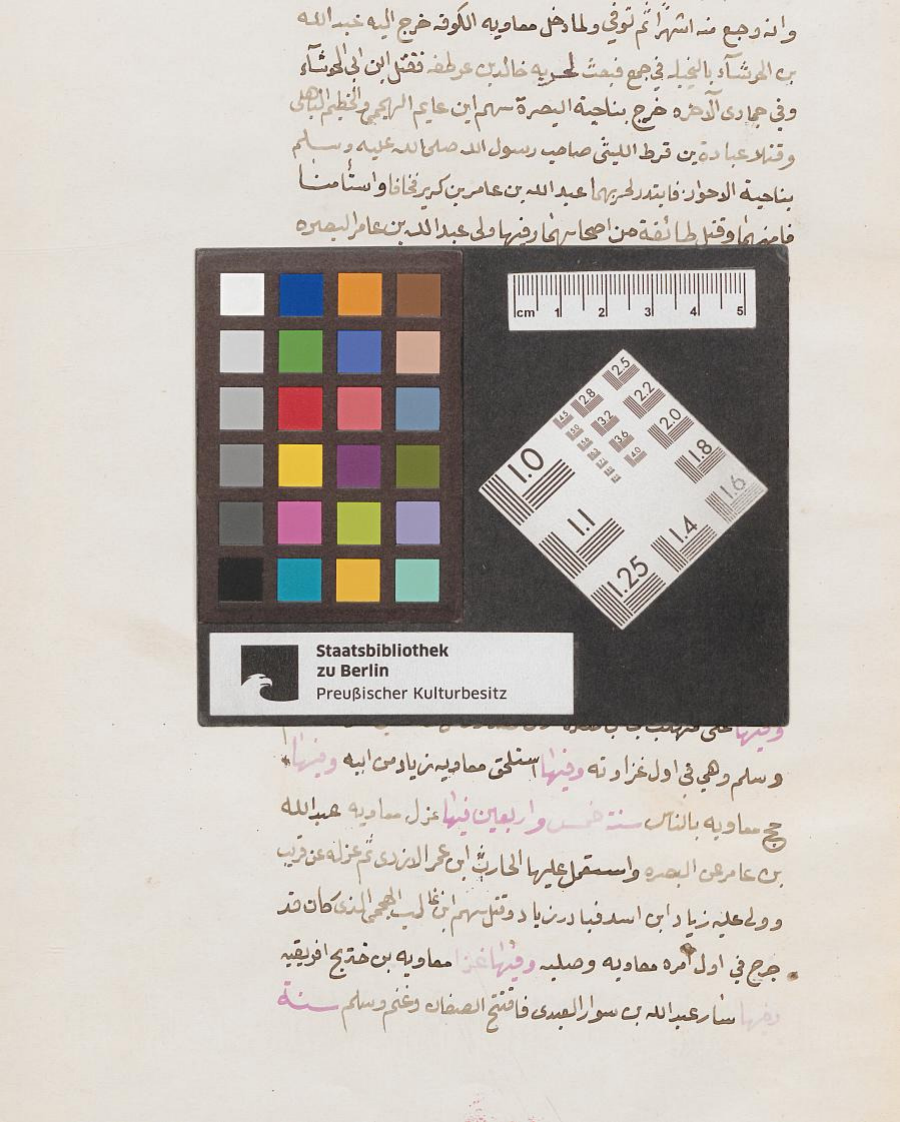 وانه وجع منه اشهرا ثم توفي ولما دخل معاويه الكوفه خرج اليه عبد الله
بن الحوشآء بالنخيله في جمع فبعث لحربه خالد بن عرطفه فقتل ابن ابي الحوشآء
وفي جمادى الآخره خرج بناحية البصرة سهم ابن غايم الهجمي والخطيم الباهلي
وقتلا عبادة بن قرط الليثي صاحب رسول الله صلى الله عليه وسلم
بناحية الاحواز فابتدر لحربهما عبد الله بن عامر بن كريز فخافا واستأمنا
فامنهما وقتل طائفة من اصحابهما وفيها ولى عبد الله بن عامر البصره
cm 1 2 3 4 5
2.5
2.8 2.2
4.5 3.2 2.0
5.0 3.6 1.8
4.0 1.6
1.0
1.1 1.4
1.25
Staatsbibliothek
zu Berlin
Preußischer Kulturbesitz
وفيها
وسلم وهي في اول غزاوته وفيها استلحق معاويه زياد من ابيه وفيها
حج معاويه بالناس سنة خمس واربعين فيها عزل معاويه عبد الله
بن عامر عن البصره واستعمل عليها الحارث ابن عمر الازدى ثم عزله عن قريب
وولى عليه زياد ابن اسد فبادر زياد وقتل سهم ابن غالب الهجمي الذى كان قد
خرج في اول امره معاويه وصلبه وفيها غزا معاويه بن خديج افريقيه
وفيها سار عبد الله بن سوار العبدى فافتتح القيقان وغنم وسلم سنة